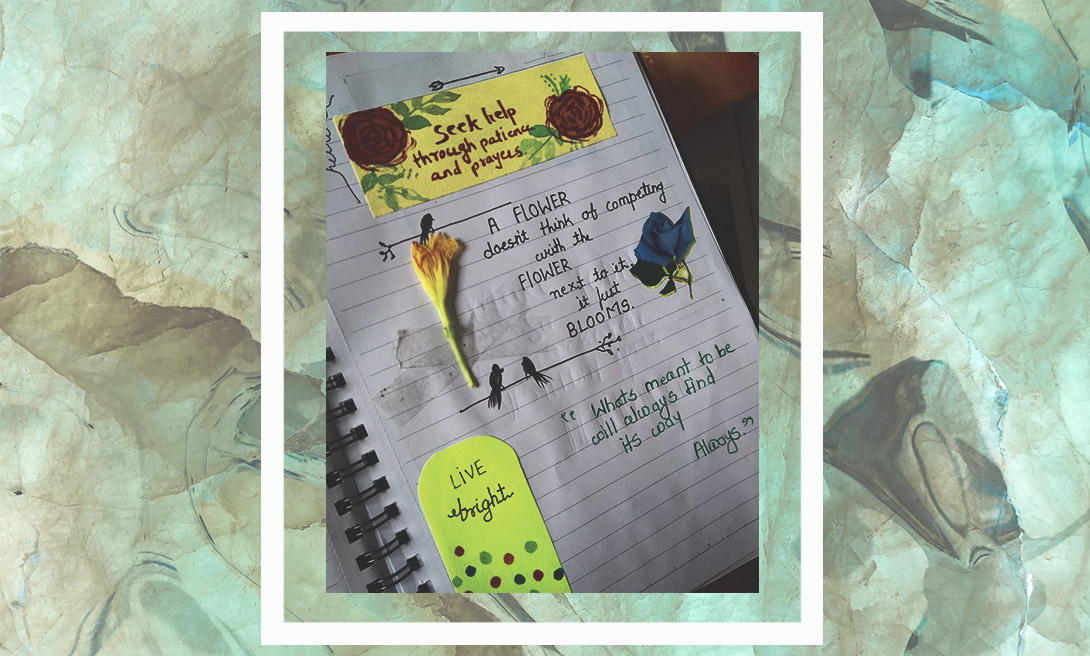 Seek help
through patience
and prayers.
A FLOWER
doesn't think of competing
with the
FLOWER
next to it,
it just
BLOOMS.
“ Whats meant to be
will always find
its way
Always.”
LIVE
bright